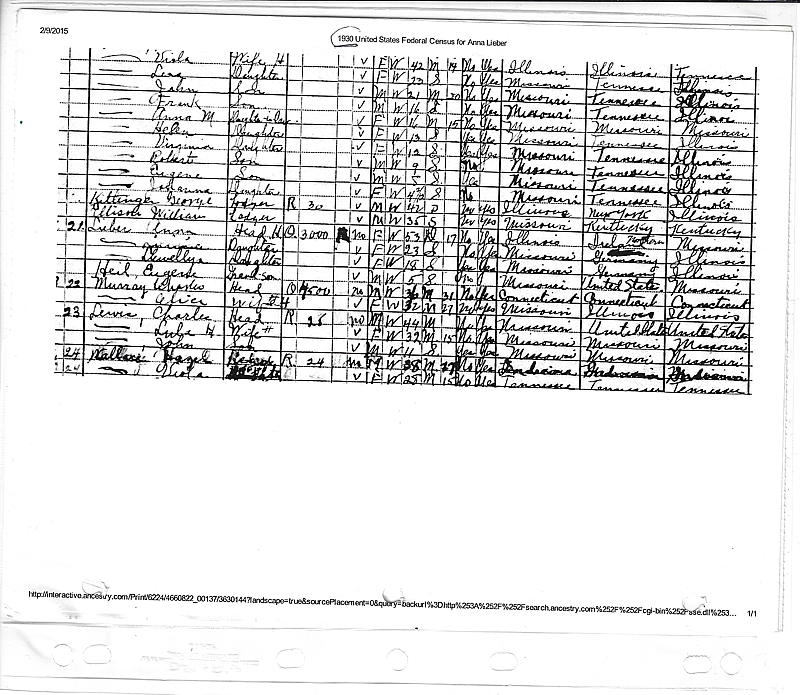 2/9/2015
1930 United States Federal Census for Anna Lieber
Viola Wife H V F W 42 M 19 No Yes Illinois Illinois Tennessee
Lena Daughter V F W 22 S No Yes Missouri Tennessee Illinois
John Son V M W 21 M 20 No Yes Missouri Tennessee Illinois
Frank Son V M W 16 S Missouri Tennessee Illinois
Anna M V F W 16 M 15 No Yes Missouri Missouri Missouri
Helen Daughter V F W 13 S Yes Missouri Tennessee Illinois
Virginia Daughter V F W 12 S Yes Yes Missouri Tennessee Illinois
Robert Son V M W 9 S Missouri Tennessee Illinois
Eugene Son V M W 5 S Missouri Tennessee Illinois
Johanna Daughter V F W S No Missouri Tennessee Illinois
Kittinger George Lodger R 30 V M W 42 D No Yes Illinois New York Illinois
Allison William Lodger V M W 35 S No Yes Missouri Kentucky Kentucky
21 Lieber Anna Head H O 3000 No F W 53 17 No Yes Illinois Northern Missouri
Daughter V F W 23 S No Yes Missouri Germany Illinois
Llewellyn Daughter V F W 18 S Missouri Germany Illinois
Heil, Eugene Grandson V M W 5 S No Missouri United States Missouri
22 Murray Charles Head O 4500 No M W 36 M 31 No Yes Connecticut Connecticut Connecticut
Alice Wife H V F W 32 M 27 No Yes Missouri Illinois Illinois
23 Lewis, Charles Head R 25 No M W 44 M Missouri United States United States
Lula H Wife H V F W 32 M 15 No Yes Missouri Missouri Missouri
John Son V M W 11 S Yes Yes Missouri Missouri Missouri
24 Wallace Hazel R 24 No W 38 M No Yes
24 Viola V F W 25 M 15 No Yes Tennessee Tennessee Tennessee
http://interactive.ancestry.com/Print/6224/4660822_00137/36301447?landscape=true&sourcePlacement=0&query=backurl%3Dhttp%253A%252F%252Fsearch.ancestry.com%252F%252Fcgi-bin%252Fsse.dll%253... 1/1